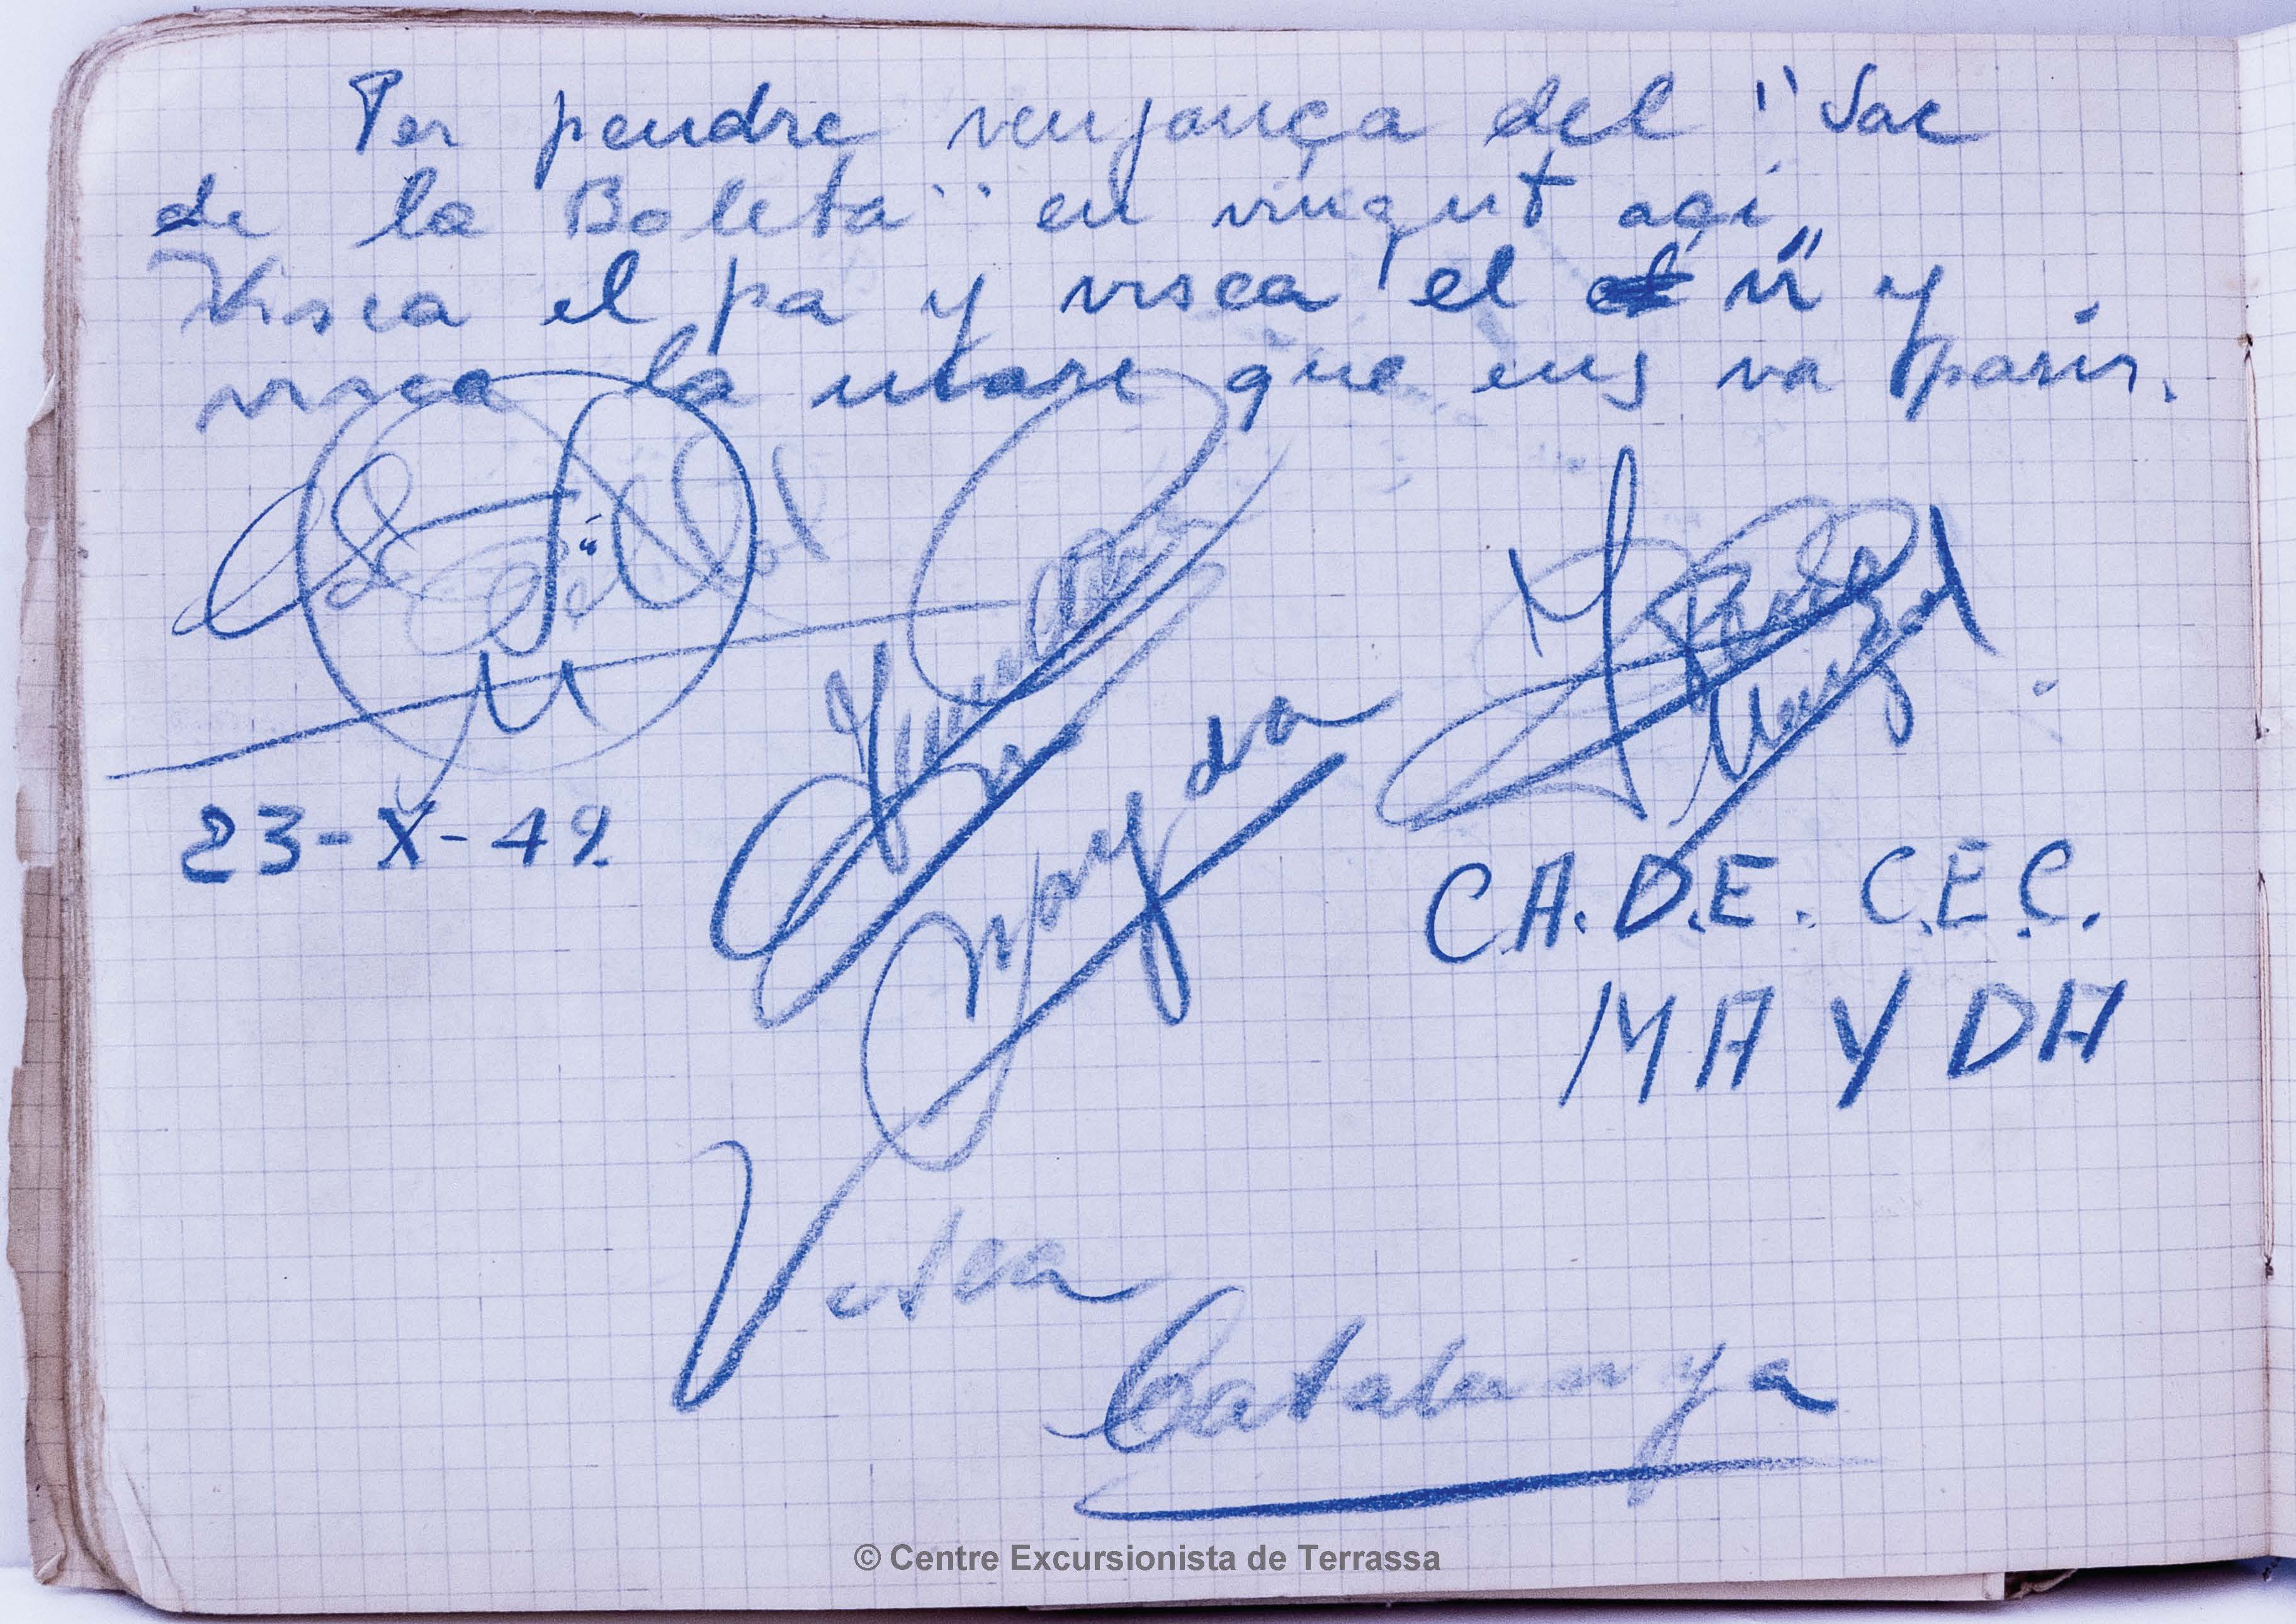 Per pendre venjança del "Sac
de la Boleta" en vingut aqi
Visca el pa y visca el vi" y
visca la mare que ens va parir.
23-X-49
C.A.D.E. C.E.C.
MAYDA
Visca
Catalunya
© Centre Excursionista de Terrassa